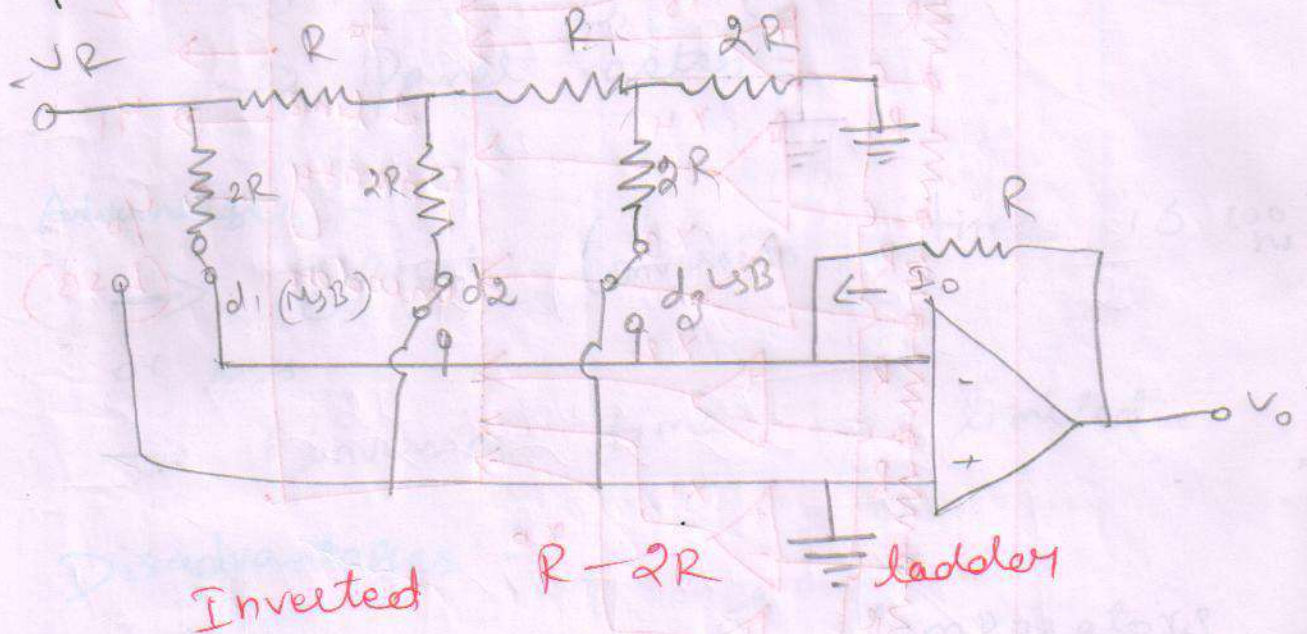 VR
R
R
2R
2R
2R
2R
R
d1 (MSB)
d2
d3 LSB
← I0
-
+
V0
Inverted R-2R ladder